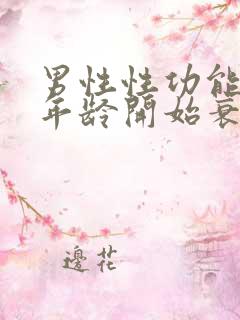 男性性功能
年龄開始衰
邊花